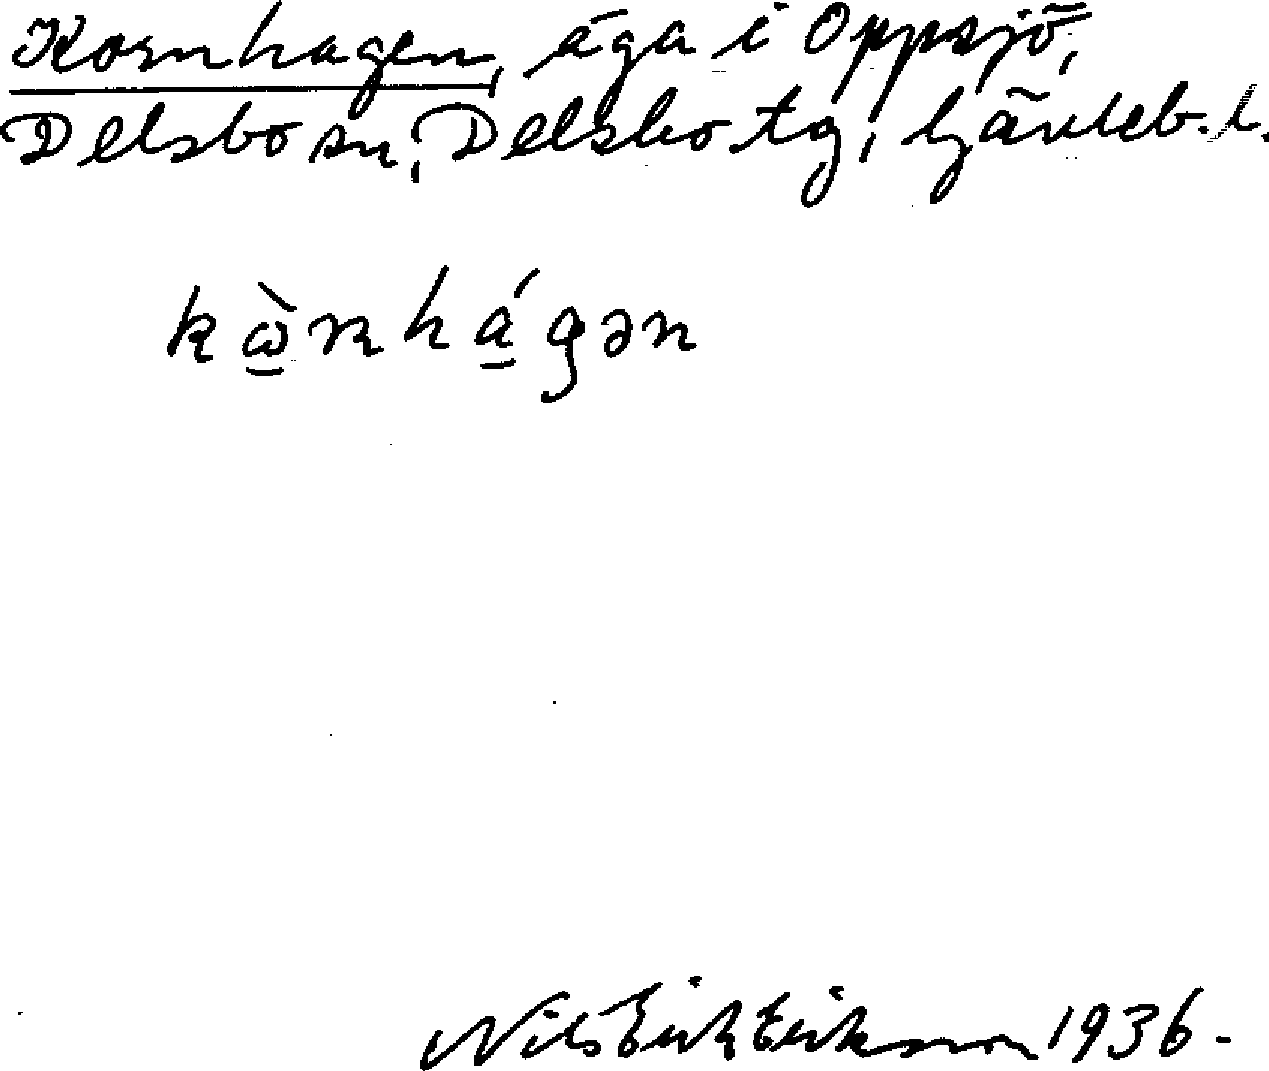 Kornhagen, äga i Oppsjö,
Delsbo sn, Delsbo tg, Gävleb. l.
kὼ̲nhá̲gən
Nils Erik Erikson 1936.